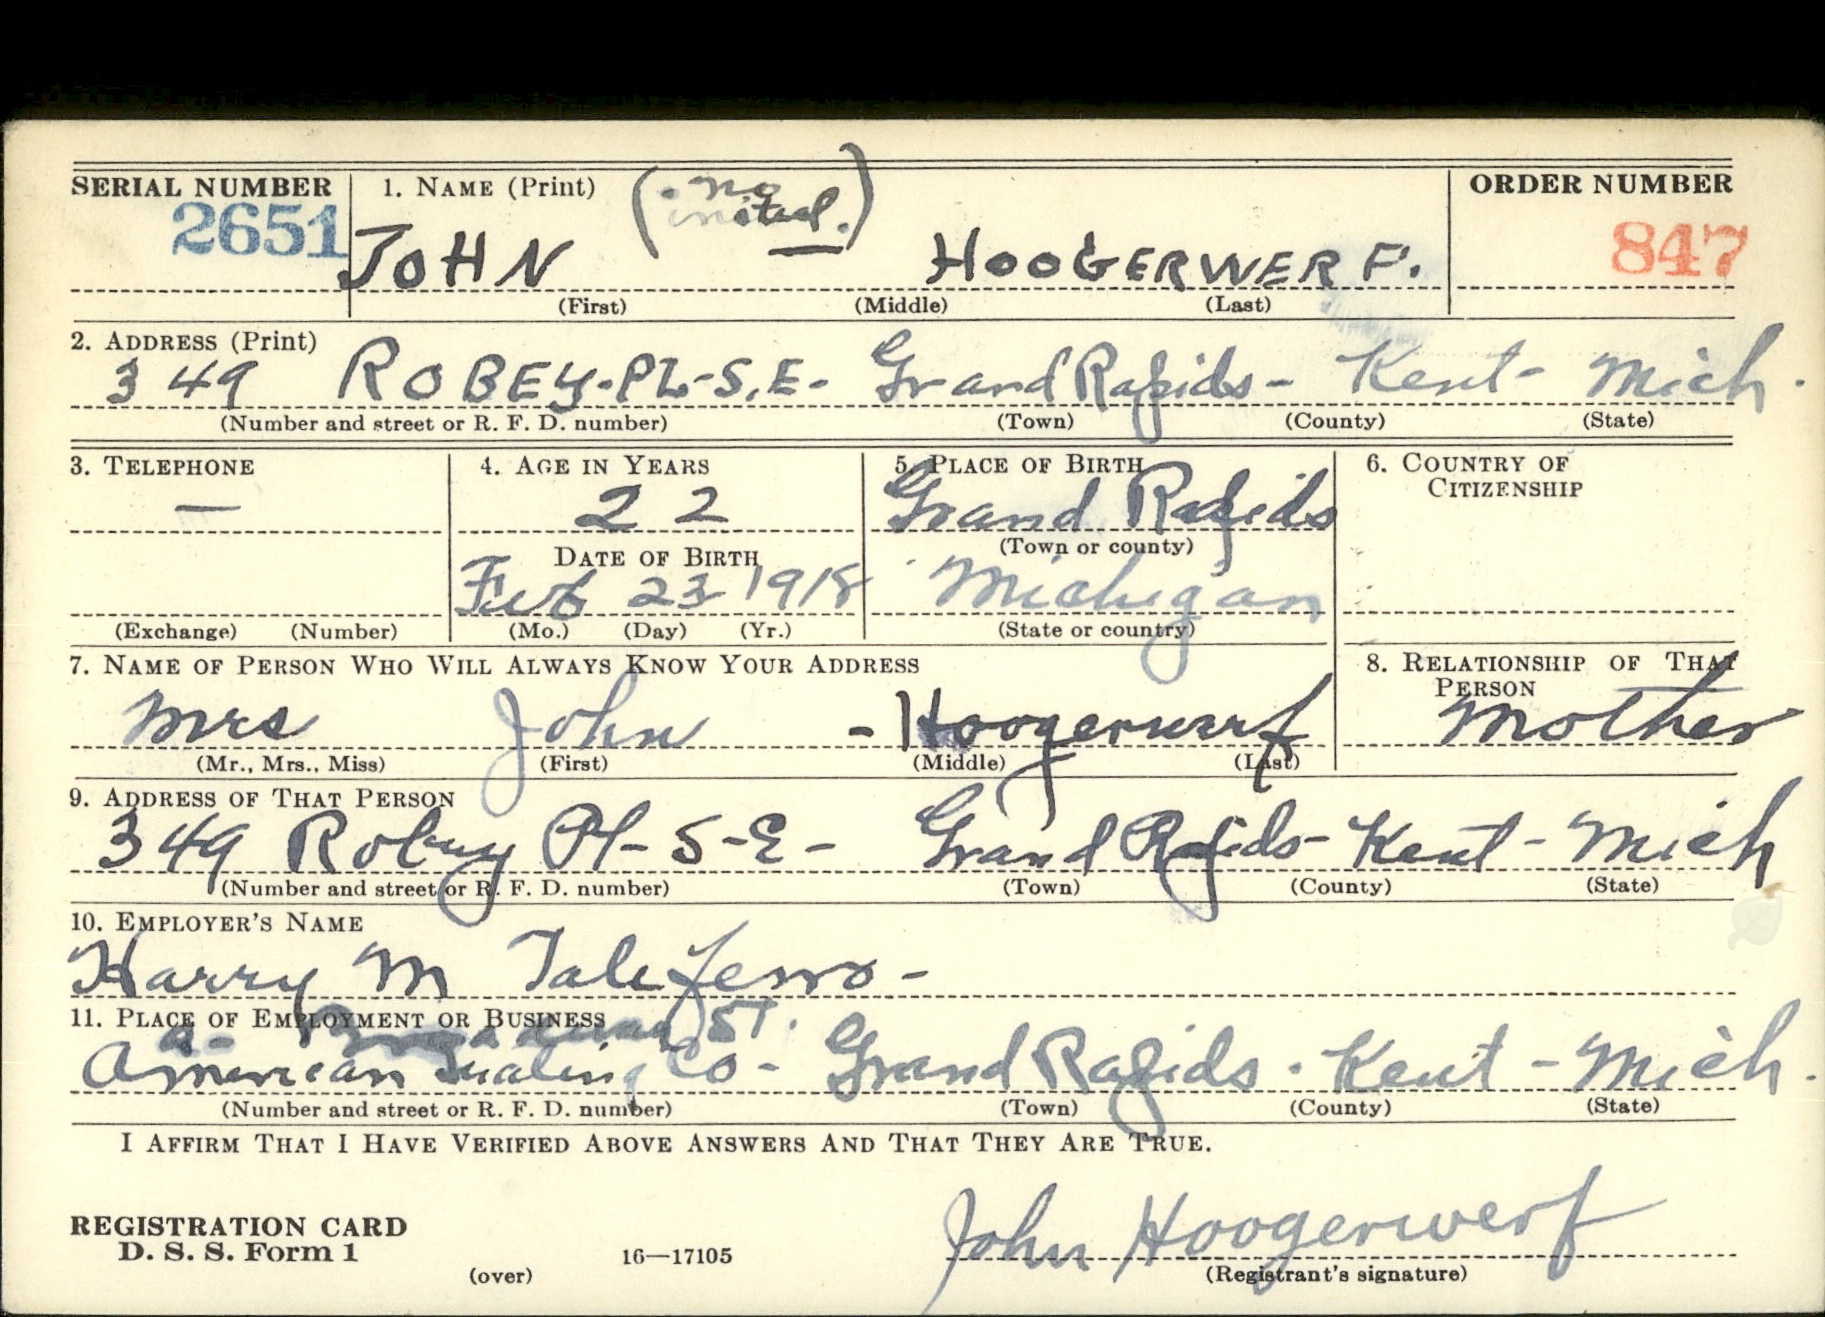 SERIAL NUMBER 1. NAME (Print) (no initial.) ORDER NUMBER
2651 JOHN HOOGERWERF. 847
(First) (Middle) (Last)
2. ADDRESS (Print)
349 ROBEY-PL-S.E- Grand Rapids- Kent- Mich.
(Number and street or R. F. D. number) (Town) (County) (State)
3. TELEPHONE 4. AGE IN YEARS 5. PLACE OF BIRTH 6. COUNTRY OF CITIZENSHIP
— 22 Grand Rapids
(Town or county)
DATE OF BIRTH
Feb 23 1918 Michigan
(Exchange) (Number) (Mo.) (Day) (Yr.) (State or country)
7. NAME OF PERSON WHO WILL ALWAYS KNOW YOUR ADDRESS 8. RELATIONSHIP OF THAT PERSON
Mrs John - Hoogerwerf Mother
(Mr., Mrs., Miss) (First) (Middle) (Last)
9. ADDRESS OF THAT PERSON
349 Robey Pl- S-E- Grand Rapids- Kent- Mich
(Number and street or R. F. D. number) (Town) (County) (State)
10. EMPLOYER'S NAME
Harry M Taleferro-
11. PLACE OF EMPLOYMENT OR BUSINESS
St.
American Seating Co- Grand Rapids. Kent- Mich.
(Number and street or R. F. D. number) (Town) (County) (State)
I AFFIRM THAT I HAVE VERIFIED ABOVE ANSWERS AND THAT THEY ARE TRUE.
John Hoogerwerf
REGISTRATION CARD
D. S. S. Form 1 (over) 16—17105 (Registrant's signature)